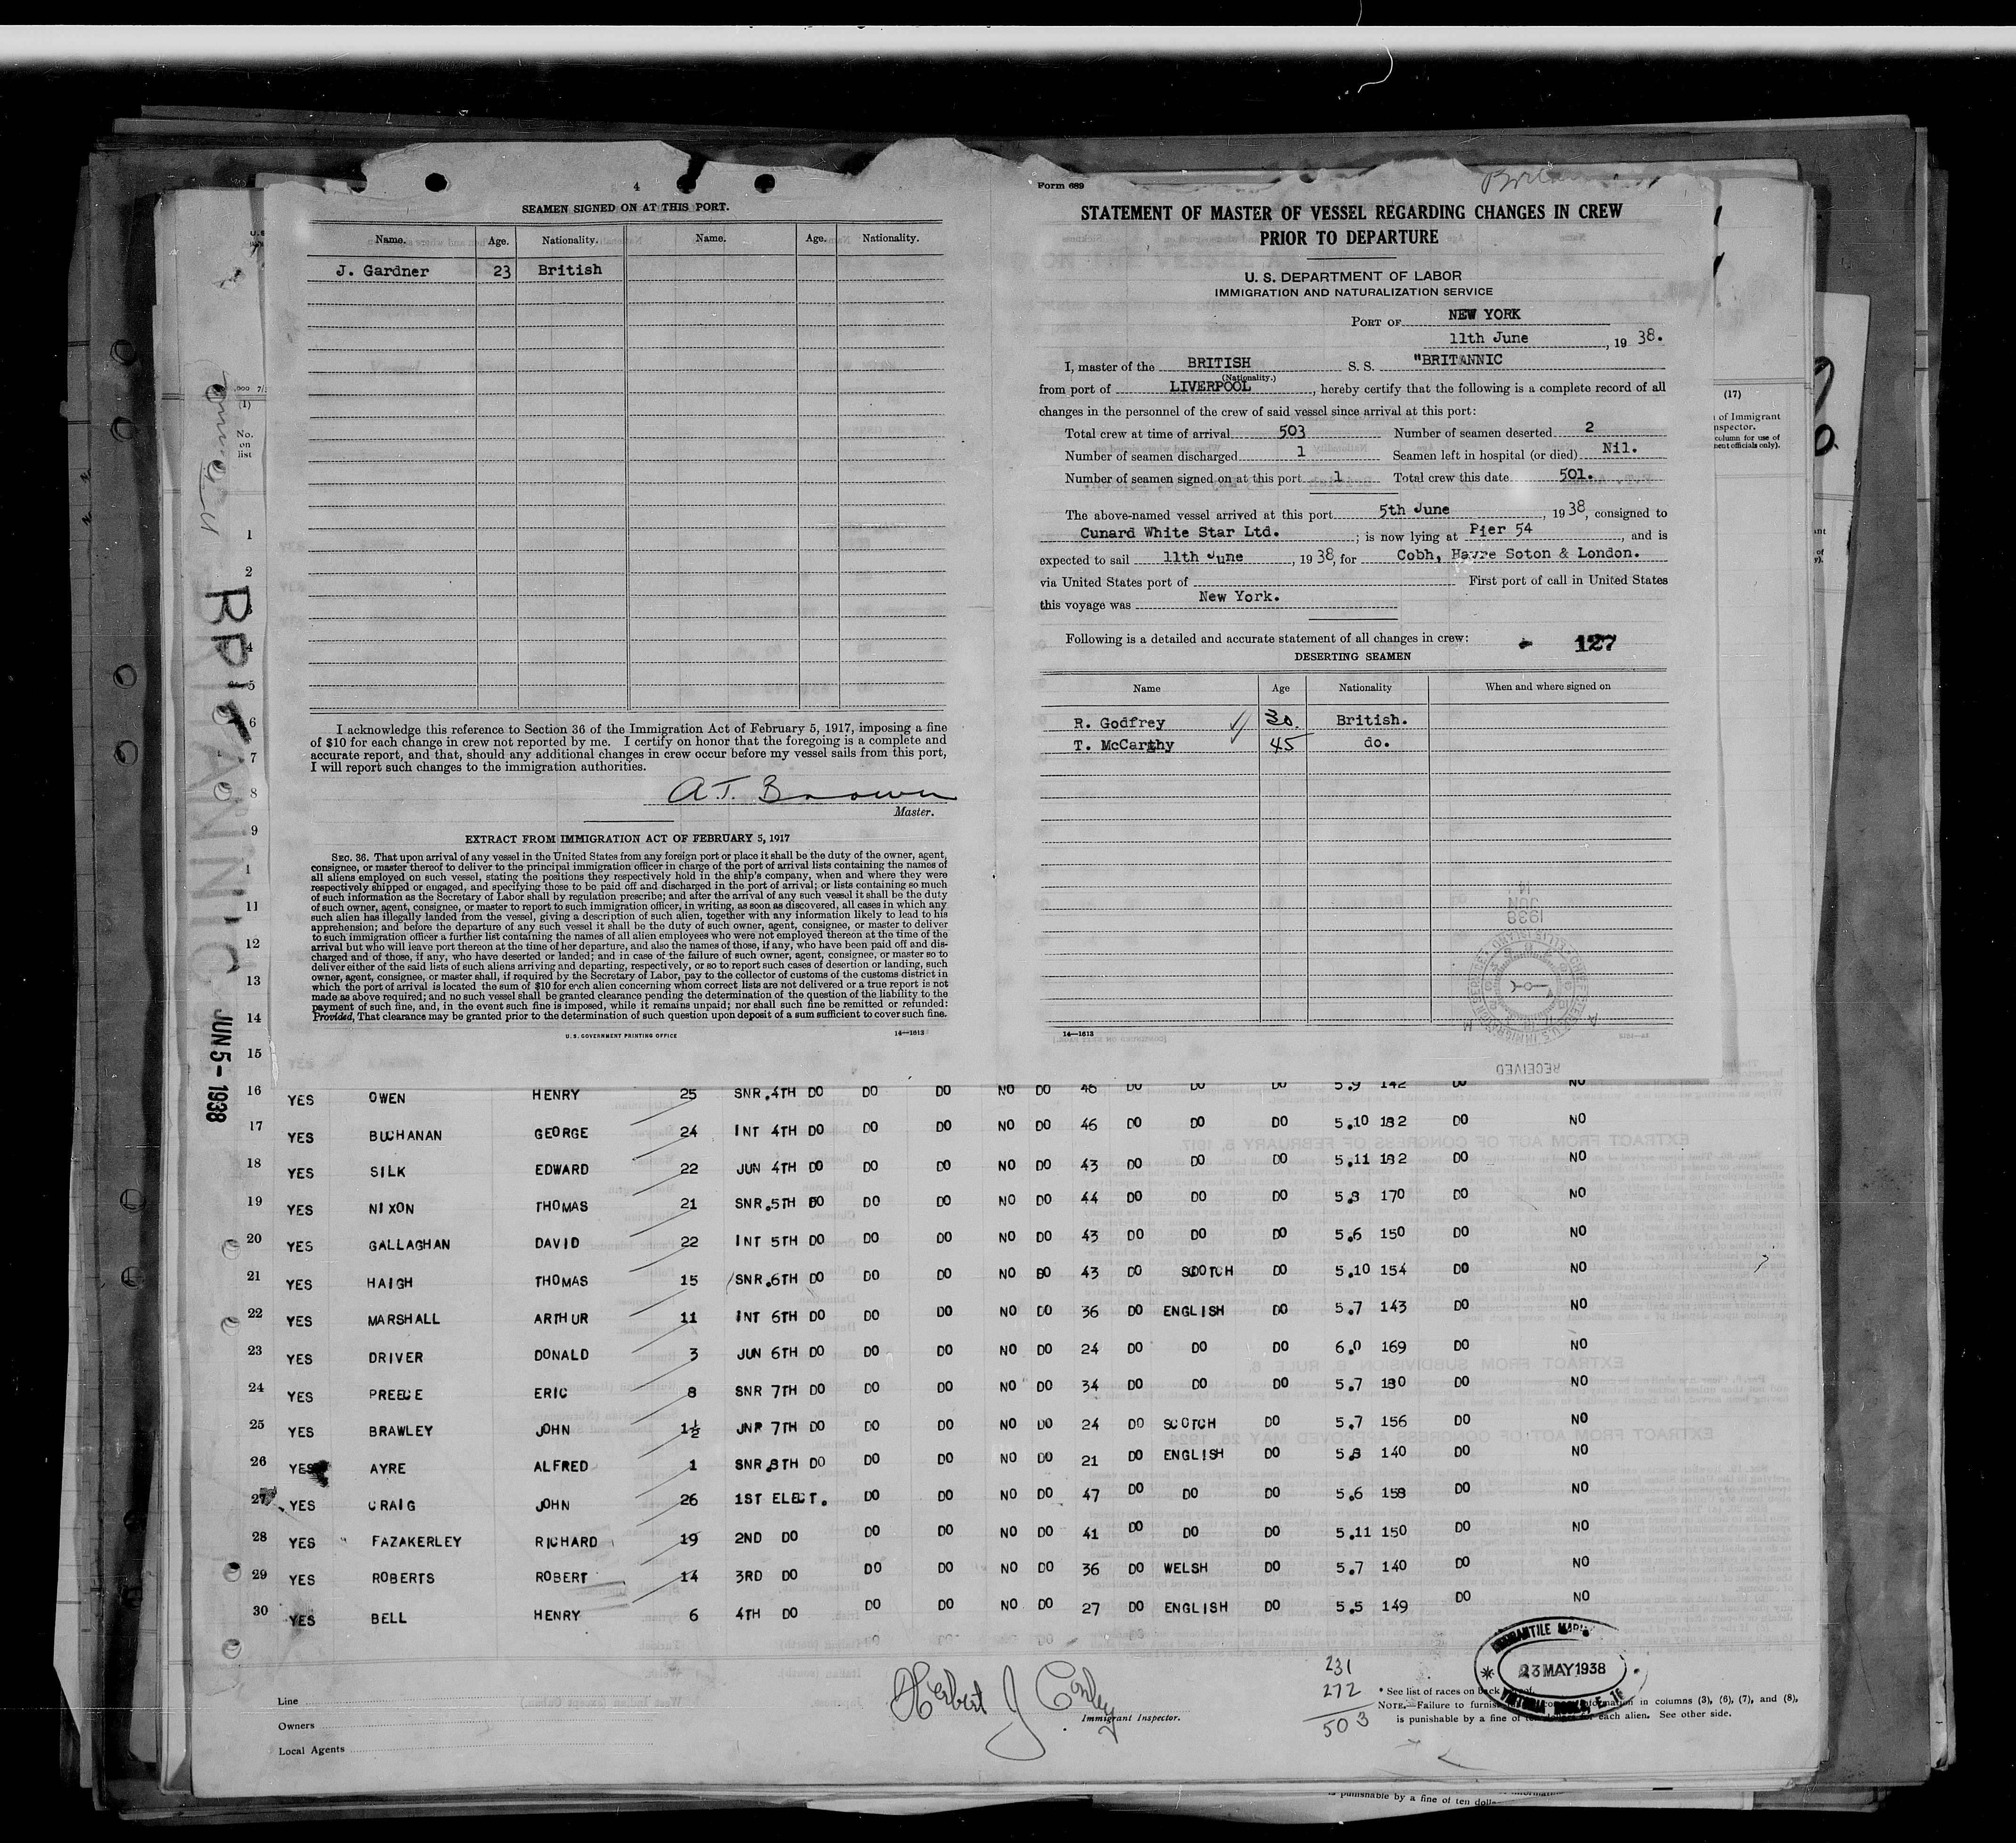 4
SEAMEN SIGNED ON AT THIS PORT.
Name. Age. Nationality. Name. Age. Nationality.
J. Gardner 23 British
I acknowledge this reference to Section 36 of the Immigration Act of February 5, 1917, imposing a fine
of $10 for each change in crew not reported by me. I certify on honor that the foregoing is a complete and
accurate report, and that, should any additional changes in crew occur before my vessel sails from this port,
I will report such changes to the immigration authorities.
A.T. Brown
Master.
EXTRACT FROM IMMIGRATION ACT OF FEBRUARY 5, 1917
SEC. 36. That upon arrival of any vessel in the United States from any foreign port or place it shall be the duty of the owner, agent,
consignee, or master thereof to deliver to the principal immigration officer in charge of the port of arrival lists containing the names of
all aliens employed on such vessel, stating the positions they respectively hold in the ship's company, when and where they were
respectively shipped or engaged, and specifying those to be paid off and discharged in the port of arrival; or lists containing so much
of such information as the Secretary of Labor shall by regulation prescribe; and after the arrival of any such vessel it shall be the duty
of such owner, agent, consignee, or master to report to such immigration officer, in writing, as soon as discovered, all cases in which any
such alien has illegally landed from the vessel, giving a description of such alien, together with any information likely to lead to his
apprehension; and before the departure of any such vessel it shall be the duty of such owner, agent, consignee, or master to deliver
to such immigration officer a further list containing the names of all alien employees who were not employed thereon at the time of the
arrival but who will leave port thereon at the time of her departure, and also the names of those, if any, who have been paid off and dis-
charged and of those, if any, who have deserted or landed; and in case of the failure of such owner, agent, consignee, or master so to
deliver either of the said lists of such aliens arriving and departing, respectively, or so to report such cases of desertion or landing, such
owner, agent, consignee, or master shall, if required by the Secretary of Labor, pay to the collector of customs of the customs district in
which the port of arrival is located the sum of $10 for each alien concerning whom correct lists are not delivered or a true report is not
made as above required; and no such vessel shall be granted clearance pending the determination of the question of the liability to the
payment of such fine, and, in the event such fine is imposed, while it remains unpaid; nor shall such fine be remitted or refunded:
Provided, That clearance may be granted prior to the determination of such question upon deposit of a sum sufficient to cover such fine.
U. S. GOVERNMENT PRINTING OFFICE 14—1613
Form 689
STATEMENT OF MASTER OF VESSEL REGARDING CHANGES IN CREW
PRIOR TO DEPARTURE
U. S. DEPARTMENT OF LABOR
IMMIGRATION AND NATURALIZATION SERVICE
PORT OF NEW YORK
11th June, 19 38.
I, master of the BRITISH S. S. "BRITANNIC
(Nationality.)
from port of LIVERPOOL, hereby certify that the following is a complete record of all
changes in the personnel of the crew of said vessel since arrival at this port:
Total crew at time of arrival 503 Number of seamen deserted 2
Number of seamen discharged 1 Seamen left in hospital (or died) Nil.
Number of seamen signed on at this port 1 Total crew this date 501.
The above-named vessel arrived at this port 5th June, 19 38, consigned to
Cunard White Star Ltd.; is now lying at Pier 54, and is
expected to sail 11th June, 19 38, for Cobh, Havre Soton & London.
via United States port of First port of call in United States
this voyage was New York.
Following is a detailed and accurate statement of all changes in crew: 127
DESERTING SEAMEN
Name Age Nationality When and where signed on
R. Godfrey 30. British.
T. McCarthy 45 do.
14—1613
(1)
No.
on
list
1
2
3
4
5
6
7
8
9
1
11
12
13
14
15
BRITANNIC
JUN 5 - 1938
(17)
of Immigrant
nspector.
column for use of
ment officials only).
16 YES OWEN HENRY 25 SNR.4TH DO DO DO NO DO 46 DO DO DO 5.9 142 DO NO
17 YES BUCHANAN GEORGE 24 INT 4TH DO DO DO NO DO 46 DO DO DO 5.10 182 DO NO
18 YES SILK EDWARD 22 JUN 4TH DO DO DO NO DO 43 DO DO DO 5.11 182 DO NO
19 YES NIXON THOMAS 21 SNR.5TH DO DO DO NO DO 44 DO DO DO 5.8 170 DO NO
20 YES GALLAGHAN DAVID 22 INT 5TH DO DO DO NO DO 43 DO DO DO 5.6 150 DO NO
21 YES HAIGH THOMAS 15 SNR.6TH DO DO DO NO DO 43 DO SCOTCH DO 5.10 154 DO NO
22 YES MARSHALL ARTHUR 11 INT 6TH DO DO DO NO DO 36 DO ENGLISH DO 5.7 143 DO NO
23 YES DRIVER DONALD 3 JUN 6TH DO DO DO NO DO 24 DO DO DO 6.0 169 DO NO
24 YES PREECE ERIC 8 SNR 7TH DO DO DO NO DO 34 DO DO DO 5.7 130 DO NO
25 YES BRAWLEY JOHN 1½ JNR 7TH DO DO DO NO DO 24 DO SCOTCH DO 5.7 156 DO NO
26 YES AYRE ALFRED 1 SNR.8TH DO DO DO NO DO 21 DO ENGLISH DO 5.8 140 DO NO
27 YES CRAIG JOHN 26 1ST ELECT. DO DO NO DO 47 DO DO DO 5.6 158 DO NO
28 YES FAZAKERLEY RICHARD 19 2ND DO DO DO NO DO 41 DO DO DO 5.11 150 DO NO
29 YES ROBERTS ROBERT 14 3RD DO DO DO NO DO 36 DO WELSH DO 5.7 140 DO NO
30 YES BELL HENRY 6 4TH DO DO DO NO DO 27 DO ENGLISH DO 5.5 149 DO NO
Line
Owners
Local Agents
Herbert J Conley
Immigrant Inspector.
231
272
503
MERCANTILE MARI
23 MAY 1938
* See list of races on back hereof.
NOTE.—Failure to furnish information in columns (3), (6), (7), and (8),
is punishable by a fine of ten dollars for each alien. See other side.
is punishable by a fine of ten dolla